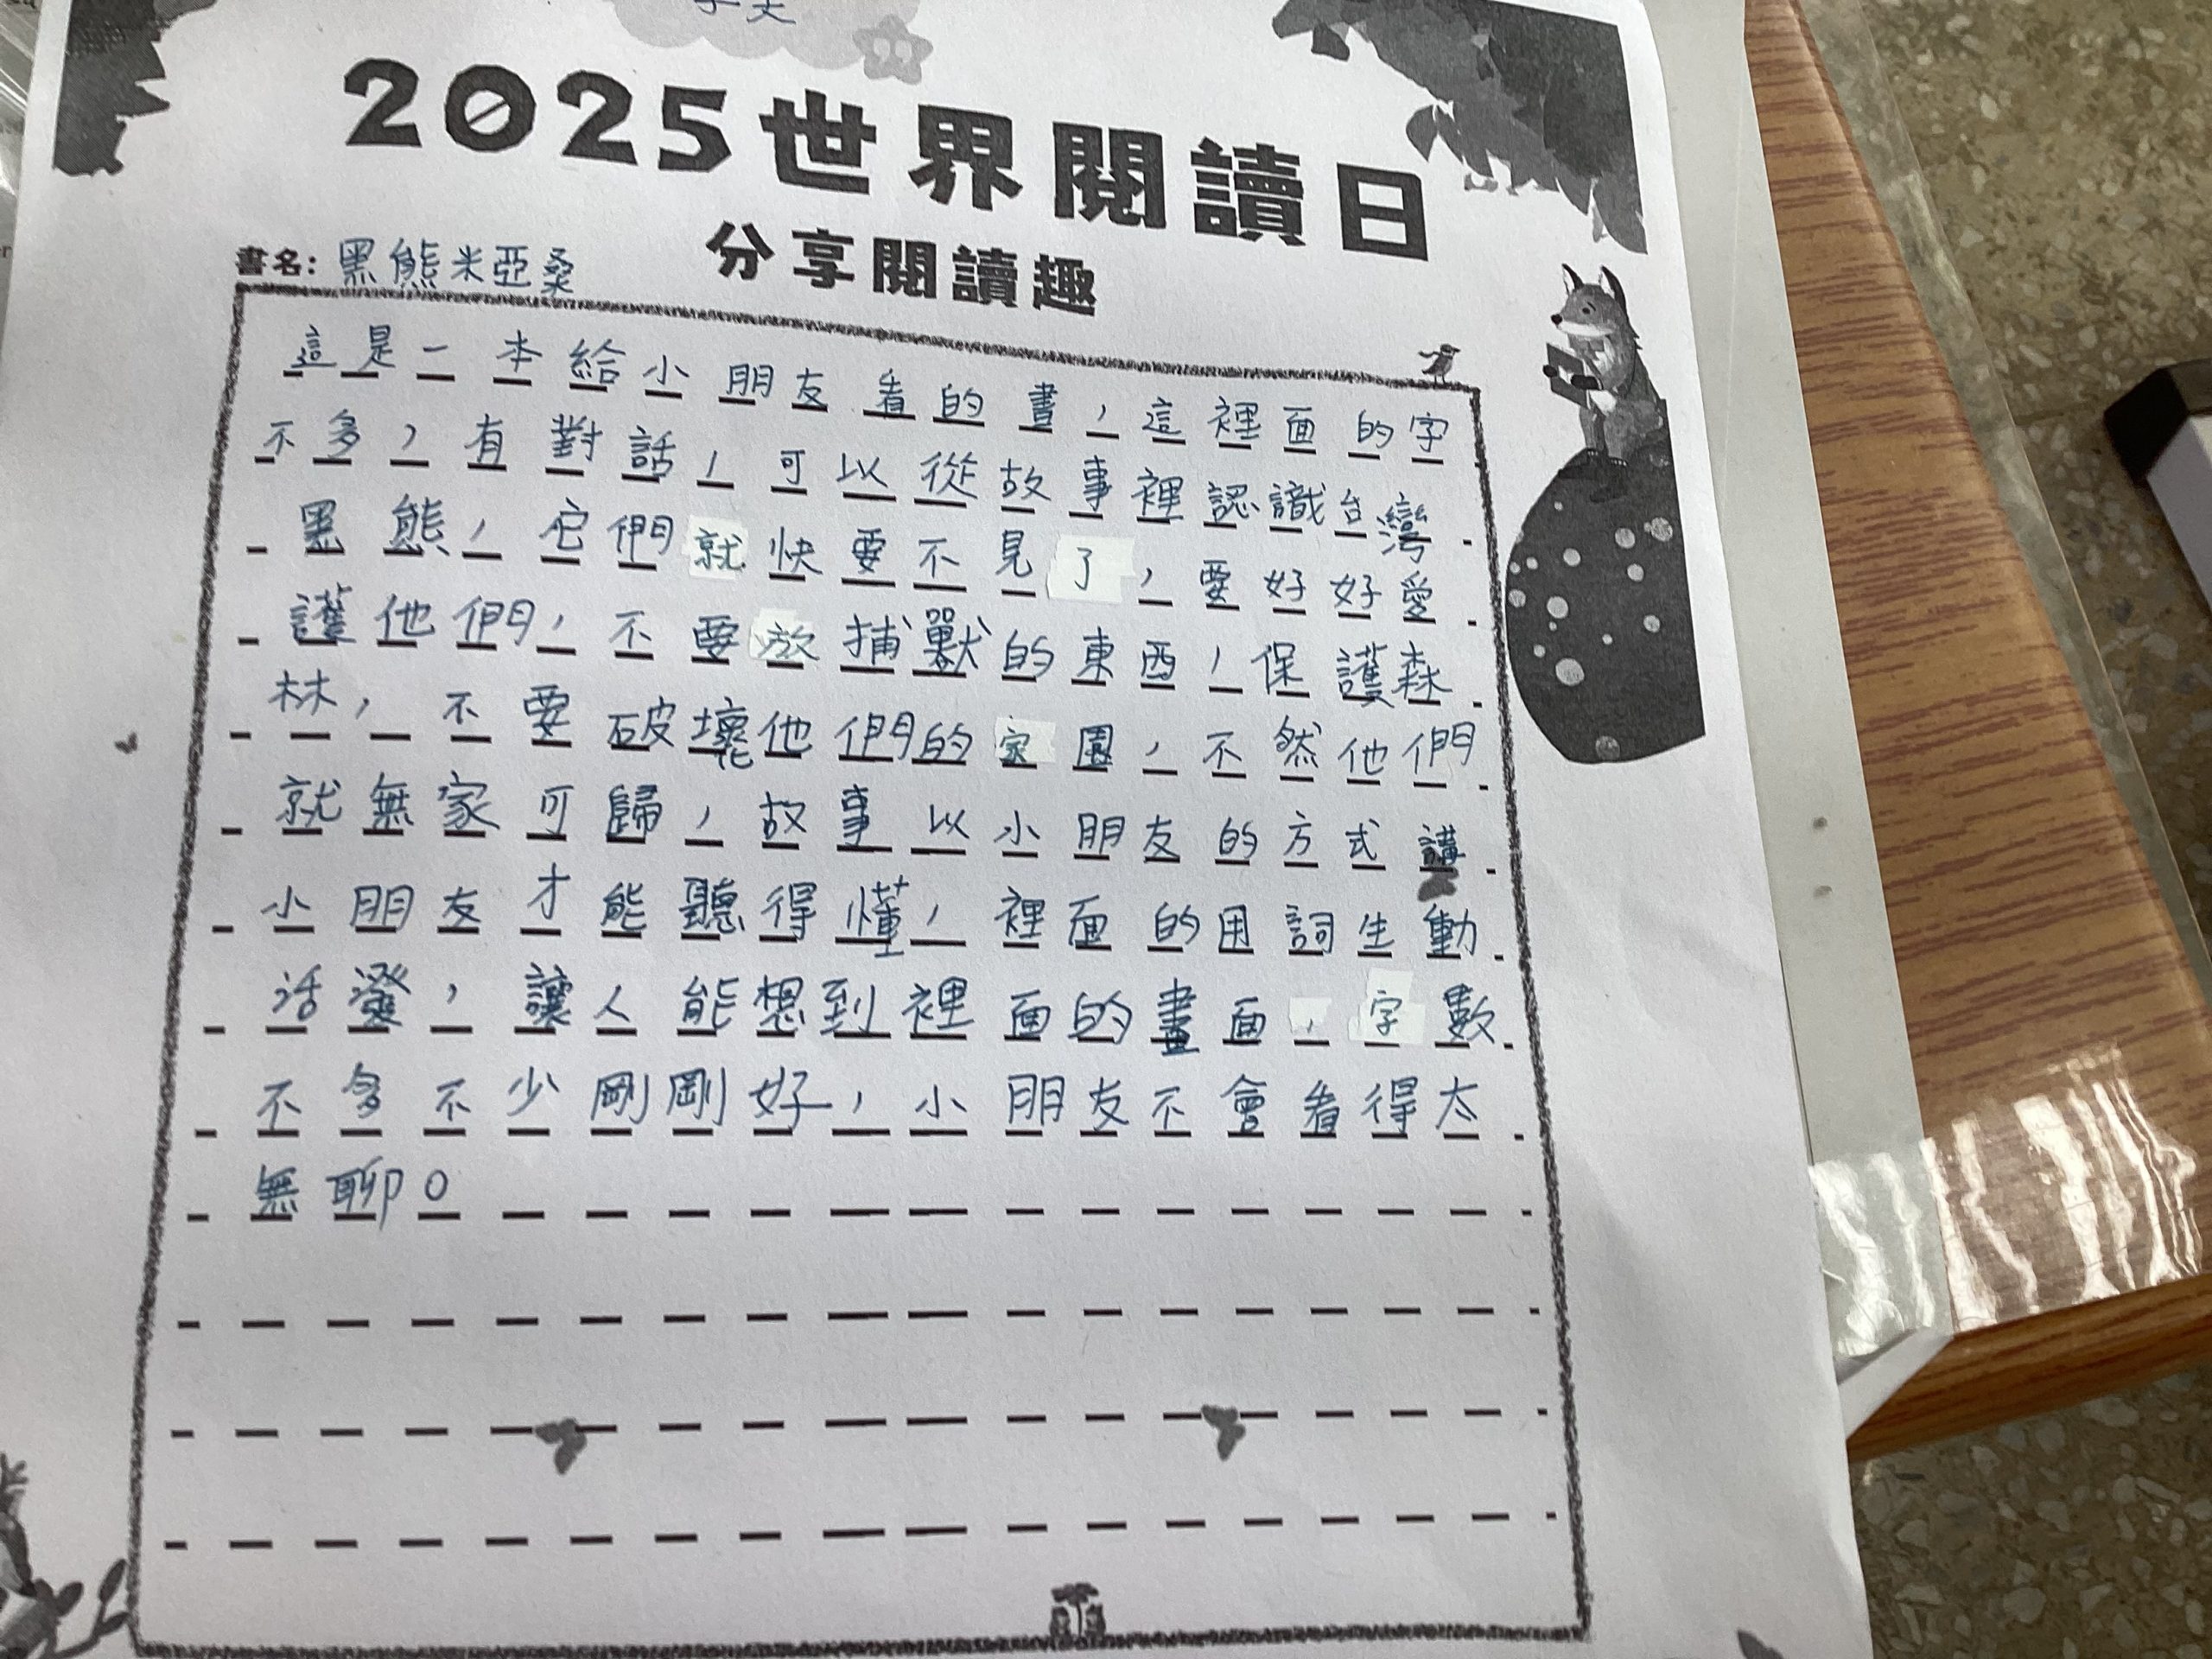 2025世界閱讀日
分享閱讀趣
書名：黑熊米亞桑
這是一本給小朋友看的書，這裡面的字
不多，有對話，可以從故事裡認識台灣
黑熊，它們就快要不見了，要好好愛
護他們，不要放捕獸的東西，保護森
林，不要破壞他們的家園，不然他們
就無家可歸，故事以小朋友的方式講
小朋友才能聽得懂，裡面的用詞生動
活潑，讓人能想到裡面的畫面，字數
不多不少剛剛好，小朋友不會看得太
無聊。